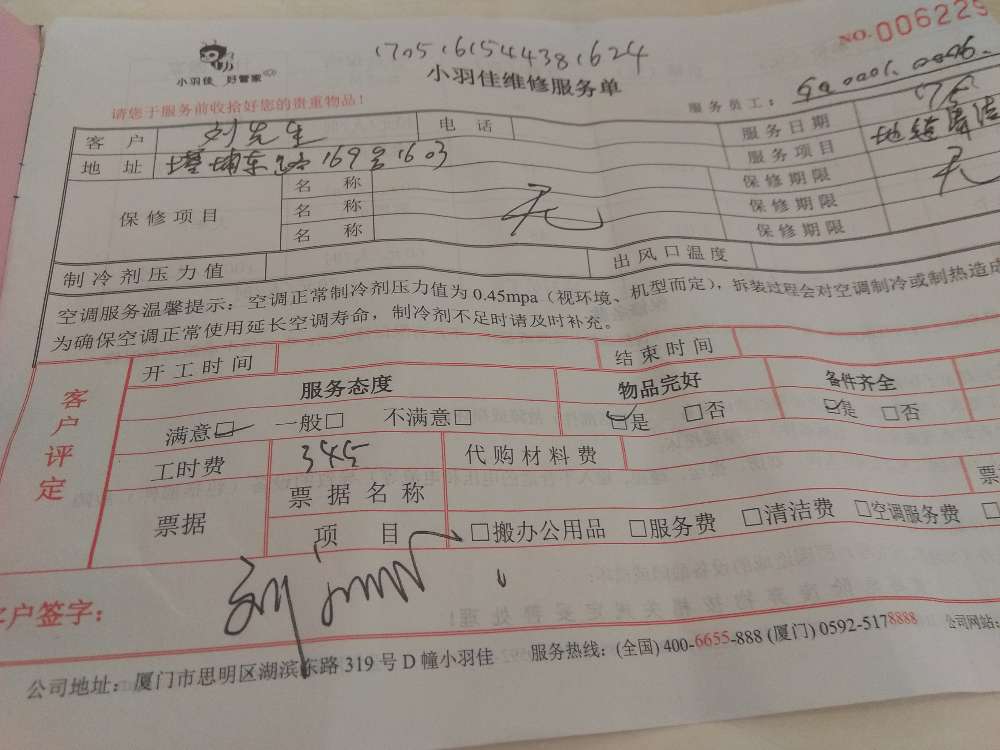 NO. 006229
1705161544381624
小羽佳 好管家
小羽佳维修服务单
请您于服务前收拾好您的贵重物品！
服务员工：
客户 刘先生 电话 服务日期
地址 塔埔东路169号1603 服务项目 地毯清洁
保修项目 名称 无 保修期限 无
名称 保修期限
名称 保修期限
制冷剂压力值 出风口温度
空调服务温馨提示：空调正常制冷剂压力值为 0.45mpa（视环境、机型而定），拆装过程会对空调制冷或制热造成
为确保空调正常使用延长空调寿命，制冷剂不足时请及时补充。
客户评定 开工时间 结束时间
服务态度 物品完好 备件齐全
满意☑ 一般□ 不满意□ ☑是 □否 ☑是 □否
工时费 345 代购材料费
票据 票据名称 票
项目 □搬办公用品 □服务费 □清洁费 □空调服务费 □
客户签字：
公司地址：厦门市思明区湖滨东路 319 号 D 幢小羽佳 服务热线：(全国) 400-6655-888 (厦门) 0592-5178888 公司网站：